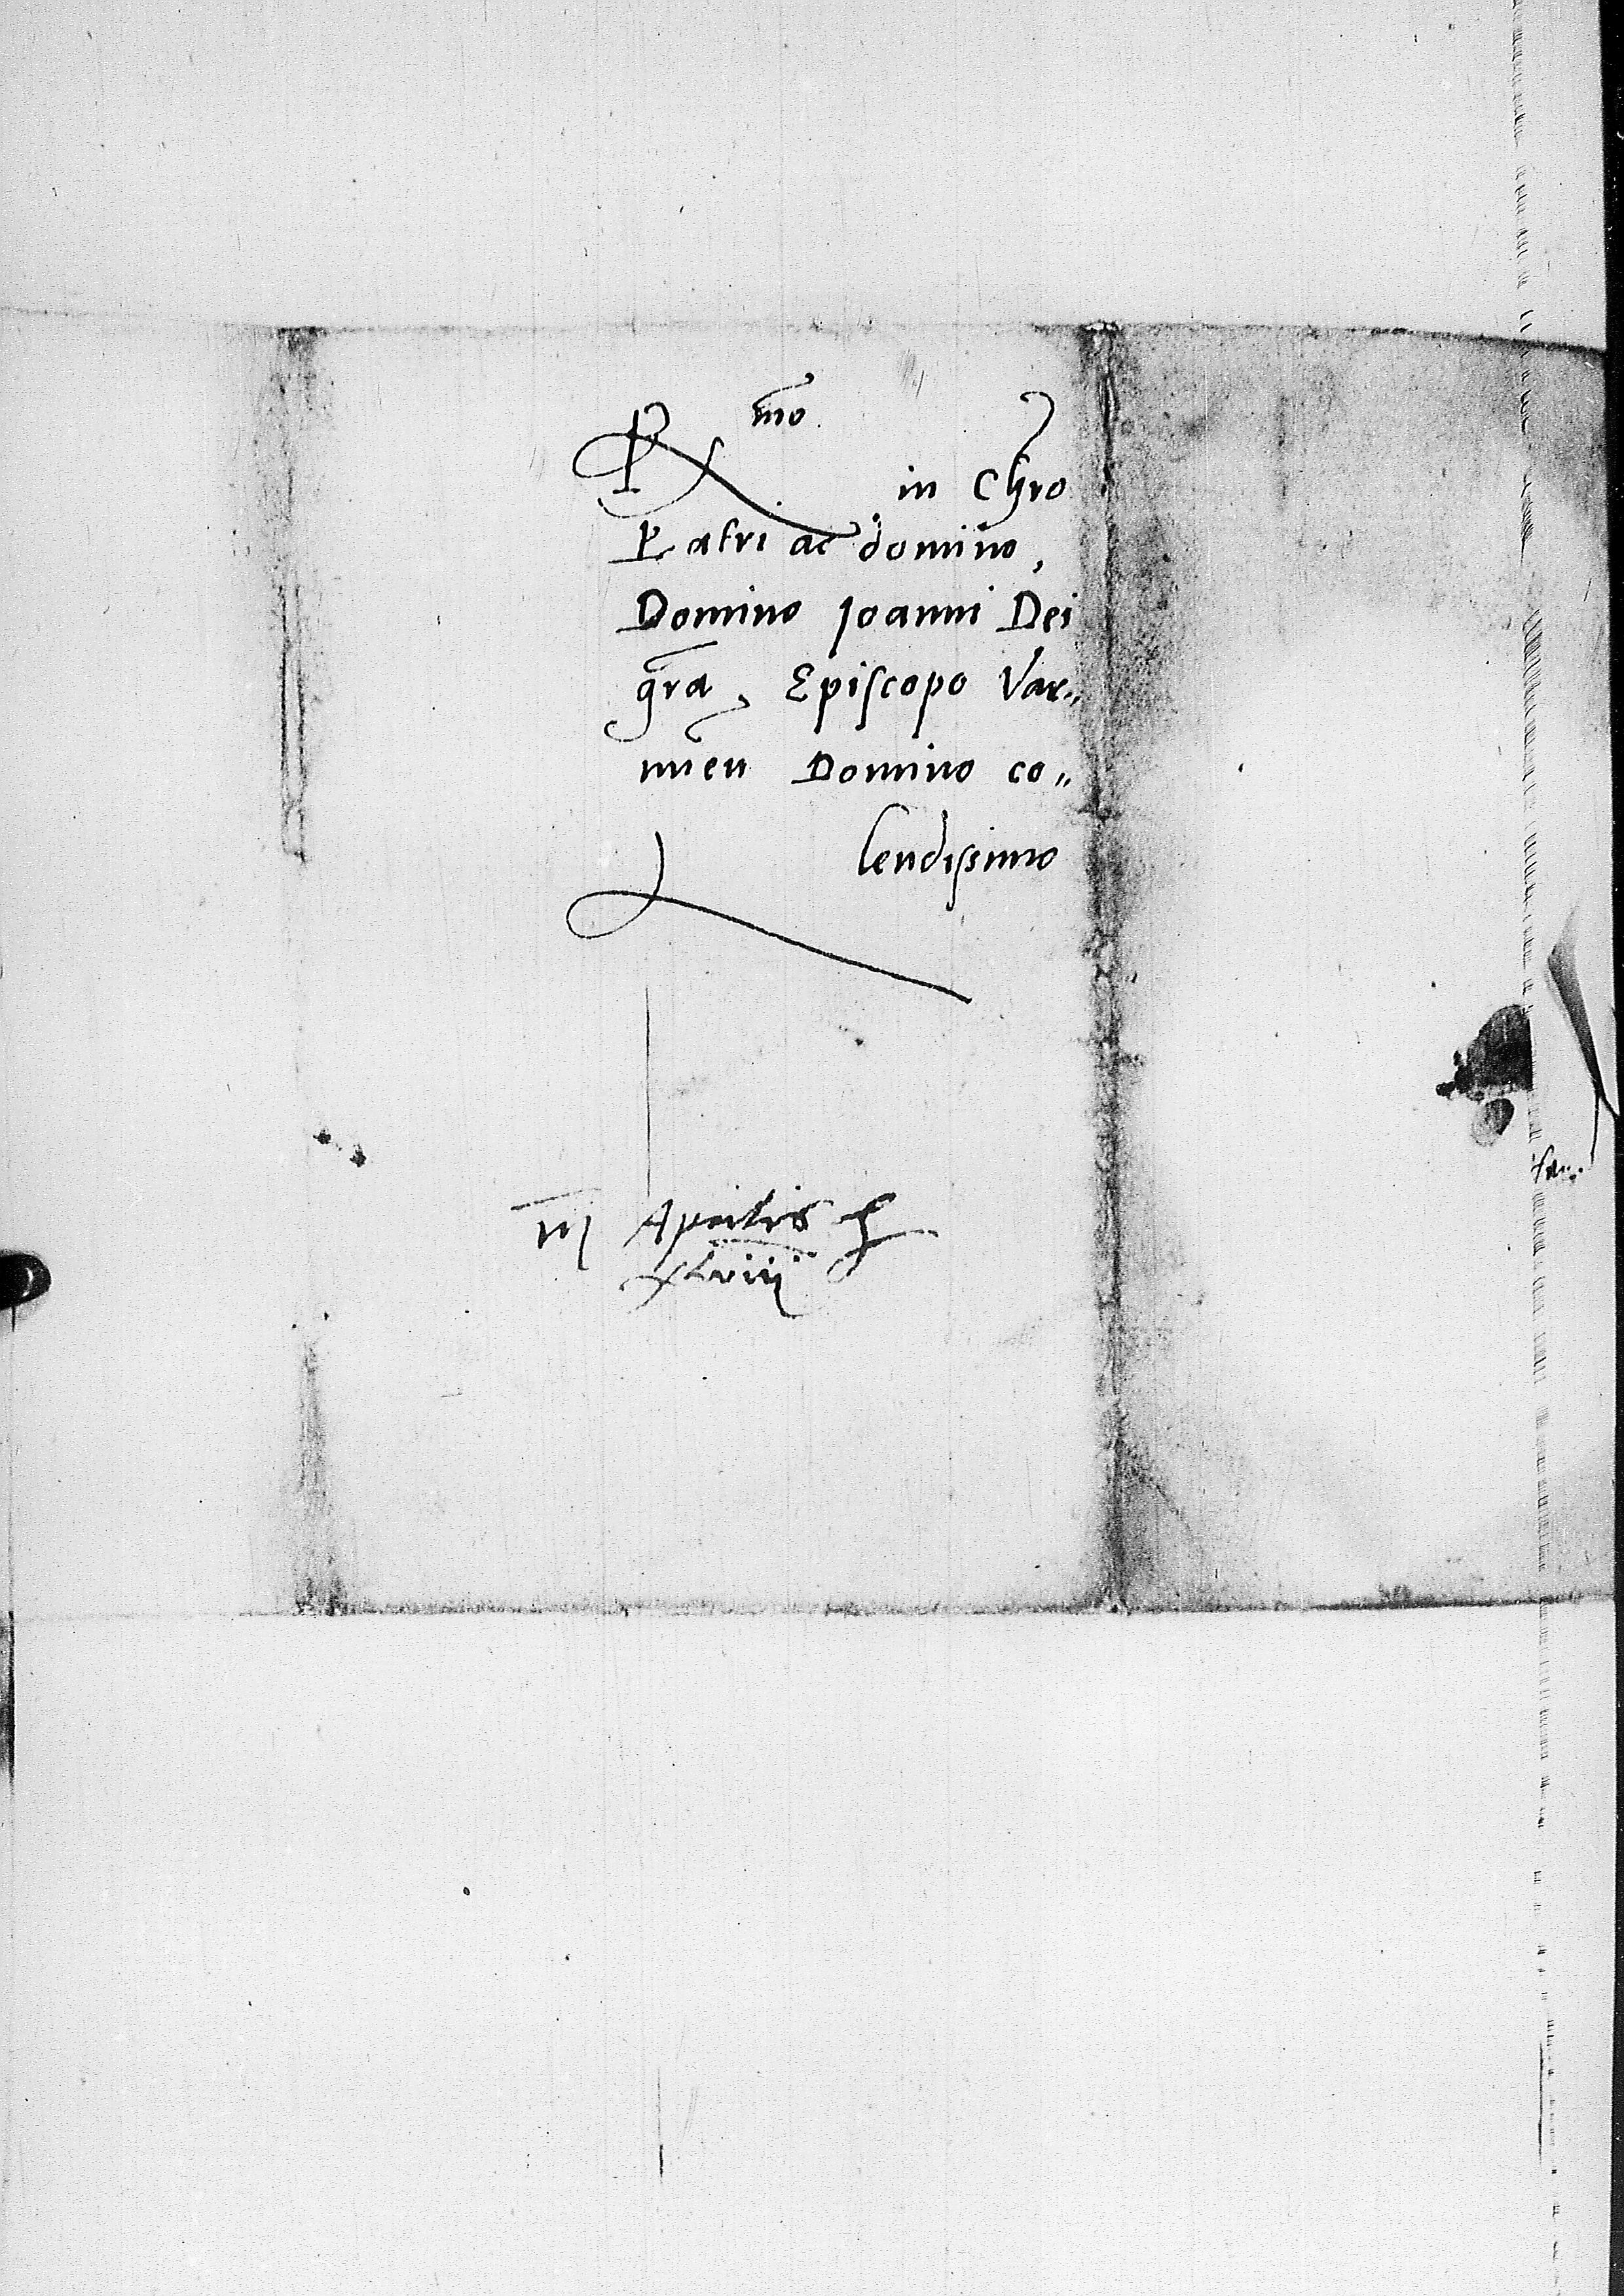 Rmo in Chro
Patri ac domino,
Domino Joanni Dei
gra, Episcopo Var„
mien Domino co„
lendissimo
iij Aprilis
xlviij